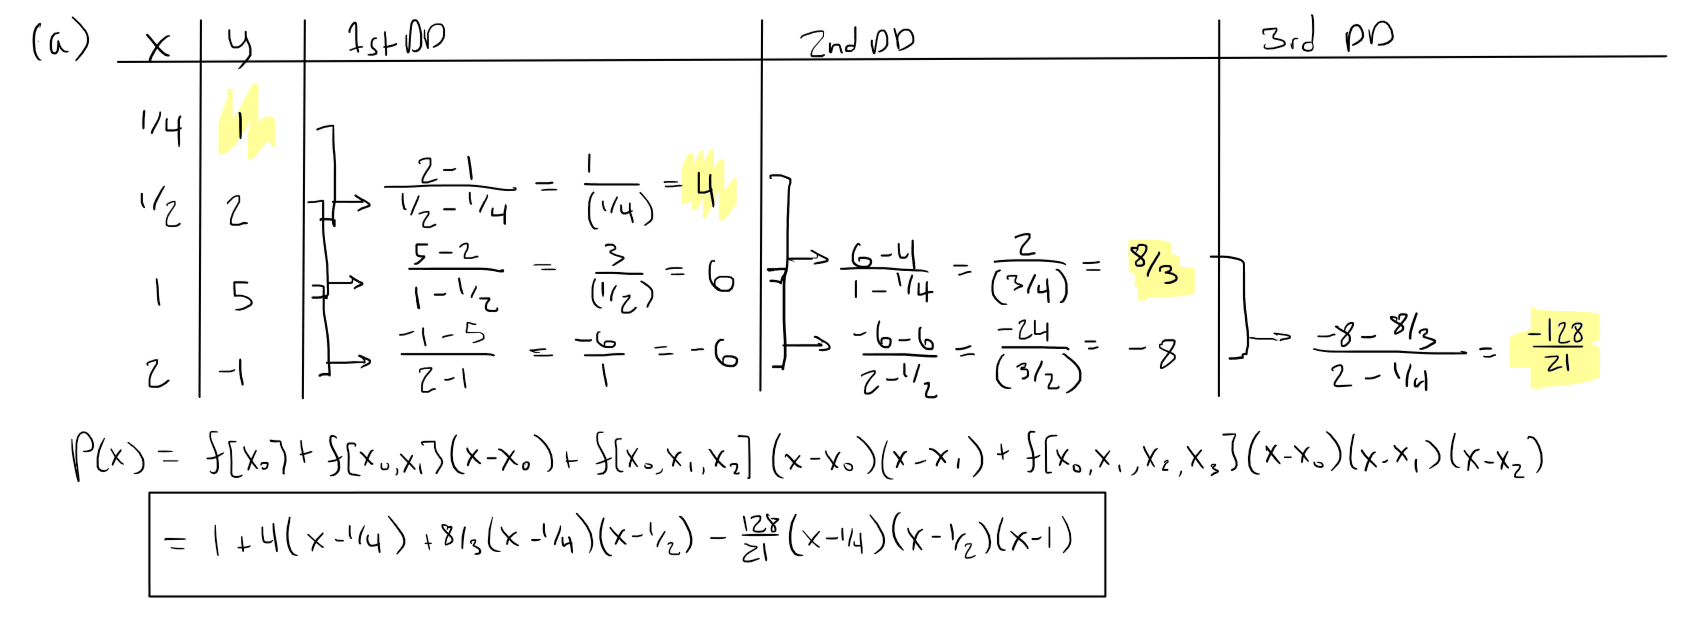 (a) x y 1st DD 2nd DD 3rd DD
1/4 1
1/2 2 (2-1)/(1/2-1/4) = 1/(1/4) = 4
1 5 (5-2)/(1-1/2) = 3/(1/2) = 6 (6-4)/(1-1/4) = 2/(3/4) = 8/3
2 -1 (-1-5)/(2-1) = -6/1 = -6 (-6-6)/(2-1/2) = -24/(3/2) = -8 (-8-8/3)/(2-1/4) = -128/21
P(x) = f[x₀] + f[x₀,x₁](x-x₀) + f[x₀,x₁,x₂](x-x₀)(x-x₁) + f[x₀,x₁,x₂,x₃](x-x₀)(x-x₁)(x-x₂)
= 1 + 4(x-1/4) + 8/3(x-1/4)(x-1/2) - 128/21(x-1/4)(x-1/2)(x-1)